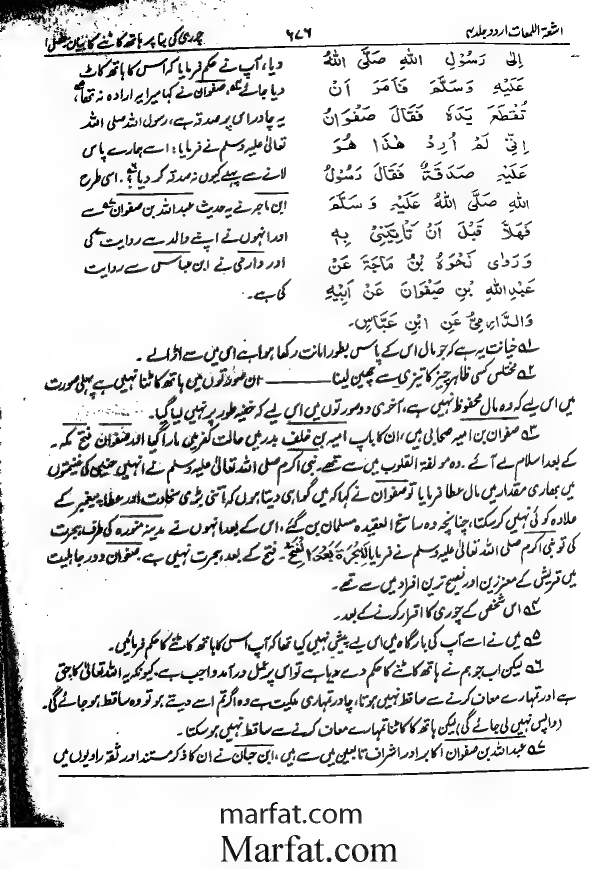 اشعۃ اللمعات اردو جلد ۴
۶۷۶
چوری کی بنا پر ہاتھ کاٹنے کا بیان فصل ۱
إلى رَسُوْلِ اللهِ صَلَّى اللهُ
عَلَيْهِ وَسَلَّمَ فَأَمَرَ أَنْ
تُقْطَعَ يَدُهُ فَقَالَ صَفْوَانُ
إِنِّيْ لَمْ أُرِدْ هٰذَا هُوَ
عَلَيْهِ صَدَقَةٌ فَقَالَ رَسُوْلُ
اللهِ صَلَّى اللهُ عَلَيْهِ وَسَلَّمَ
فَهَلَّا قَبْلَ أَنْ تَأْتِيَنِيْ بِهٖ
وَرَوٰى نَحْوَهُ بْنُ مَاجَةَ عَنْ
عَبْدِ اللهِ بْنِ صَفْوَانَ عَنْ أَبِيْهِ
وَالدَّارِمِيُّ عَنِ ابْنِ عَبَّاسٍ۔
دیا، آپ نے حکم فرمایا کہ اس کا ہاتھ کاٹ
دیا جائے، صفوان نے کہا میرا یہ ارادہ نہ تھا،
یہ چادر اس پر صدقہ ہے، رسول اللہ صلی اللہ
تعالیٰ علیہ وسلم نے فرمایا: اسے ہمارے پاس
لانے سے پہلے کیوں نہ صدقہ کر دیا؟ اسی طرح
ابن ماجہ نے یہ حدیث عبداللہ بن صفوان سے
اور انہوں نے اپنے والد سے روایت کی
اور دارمی نے ابن عباس سے روایت
کی ہے۔
۱ خیانت یہ ہے کہ جو مال اس کے پاس بطور امانت رکھا ہوا ہے اس میں سے اڑا لے۔
۲ مختلس کسی ظاہر چیز کا تیزی سے چھین لینا ـــــــ ان صورتوں میں ہاتھ کاٹنا نہیں ہے پہلی صورت
میں اس لیے کہ وہ مال محفوظ نہیں ہے، آخری دو صورتوں میں اس لیے کہ خفیہ طور پر نہیں لیا گیا۔
۳ صفوان بن امیہ صحابی ہیں، ان کا باپ امیہ بن خلف بدر میں حالت کفر میں مارا گیا اور صفوان فتح مکہ
کے بعد اسلام لے آئے۔ وہ مولفۃ القلوب میں سے تھے۔ نبی اکرم صلی اللہ تعالیٰ علیہ وسلم نے انہیں حنین کی غنیمتوں
میں بھاری مقدار میں مال عطا فرمایا تو صفوان نے کہا کہ میں گواہی دیتا ہوں کہ اتنی بڑی سخاوت اور عطا پیغمبر کے
علاوہ کوئی نہیں کر سکتا، چنانچہ وہ راسخ العقیدہ مسلمان بن گئے، اس کے بعد انہوں نے مدینہ منورہ کی طرف ہجرت
کی تو نبی اکرم صلی اللہ تعالیٰ علیہ وسلم نے فرمایا لَا هِجْرَةَ بَعْدَ الْفَتْحِ۔ فتح کے بعد ہجرت نہیں ہے صفوان دور جاہلیت
میں قریش کے معززین اور فصیح ترین افراد میں سے تھے۔
۴ اس شخص کے چوری کا اقرار کرنے کے بعد۔
۵ میں نے اسے آپ کی بارگاہ میں اس لیے پیش نہیں کیا تھا کہ آپ اس کا ہاتھ کاٹنے کا حکم فرمائیں۔
۶ لیکن اب جو ہم نے ہاتھ کاٹنے کا حکم دے دیا ہے تو اس پر عمل درآمد واجب ہے، کیونکہ یہ اللہ تعالیٰ کا حق
ہے اور تمہارے معاف کرنے سے ساقط نہیں ہوتا، چادر تمہاری ملکیت ہے وہ اگر تم اسے دیتے ہو تو وہ ساقط ہو جائے گی۔
(واپس نہیں لی جائے گی) لیکن ہاتھ کا کاٹنا تمہارے معاف کرنے سے ساقط نہیں ہو سکتا۔
۷ عبداللہ بن صفوان اکابر اور اشراف تابعین میں سے ہیں، ابن حبان نے ان کا ذکر مستند اور ثقہ راویوں میں
marfat.com
Marfat.com